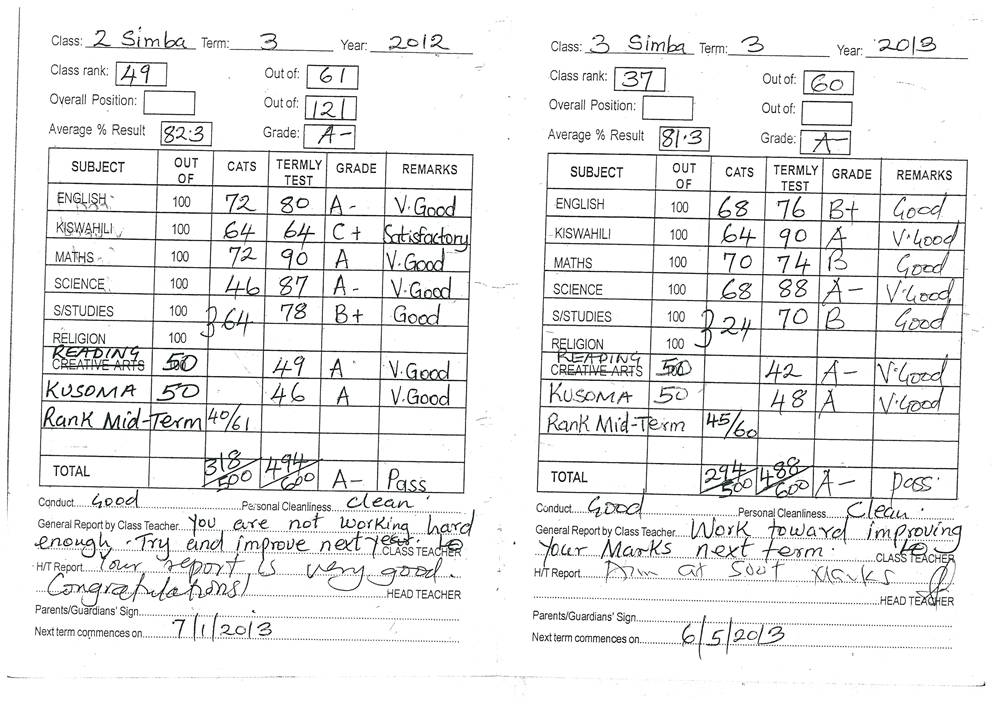 Class: 2 Simba Term: 3 Year: 2012
Class rank: 49 Out of: 61
Overall Position: Out of: 121
Average % Result 82.3 Grade: A-
SUBJECT OUT OF CATS TERMLY TEST GRADE REMARKS
ENGLISH 100 72 80 A- V.Good
KISWAHILI 100 64 64 C+ Satisfactory
MATHS 100 72 90 A V.Good
SCIENCE 100 46 87 A- V.Good
S/STUDIES 100 } 64 78 B+ Good
RELIGION 100
READING
CREATIVE ARTS 50 49 A V.Good
KUSOMA 50 46 A V.Good
Rank Mid-Term 40/61
TOTAL 318/500 494/600 A- Pass
Conduct Good Personal Cleanliness clean
General Report by Class Teacher You are not working hard
enough. Try and improve next year. CLASS TEACHER
H/T Report Your report is very good.
Congratulations! HEAD TEACHER
Parents/Guardians' Sign
Next term commences on 7/1/2013
Class: 3 Simba Term: 3 Year: 2013
Class rank: 37 Out of: 60
Overall Position: Out of:
Average % Result 81.3 Grade: A-
SUBJECT OUT OF CATS TERMLY TEST GRADE REMARKS
ENGLISH 100 68 76 B+ Good
KISWAHILI 100 64 90 A V.Good
MATHS 100 70 74 B Good
SCIENCE 100 68 88 A- V.Good
S/STUDIES 100 } 24 70 B Good
RELIGION 100
READING
CREATIVE ARTS 50 42 A- V.Good
KUSOMA 50 48 A V.Good
Rank Mid-Term 45/60
TOTAL 294/500 488/600 A- pass.
Conduct Good Personal Cleanliness Clean.
General Report by Class Teacher Work toward improving
your Marks next term. CLASS TEACHER
H/T Report Aim at 500+ Marks
HEAD TEACHER
Parents/Guardians' Sign
Next term commences on 6/5/2013